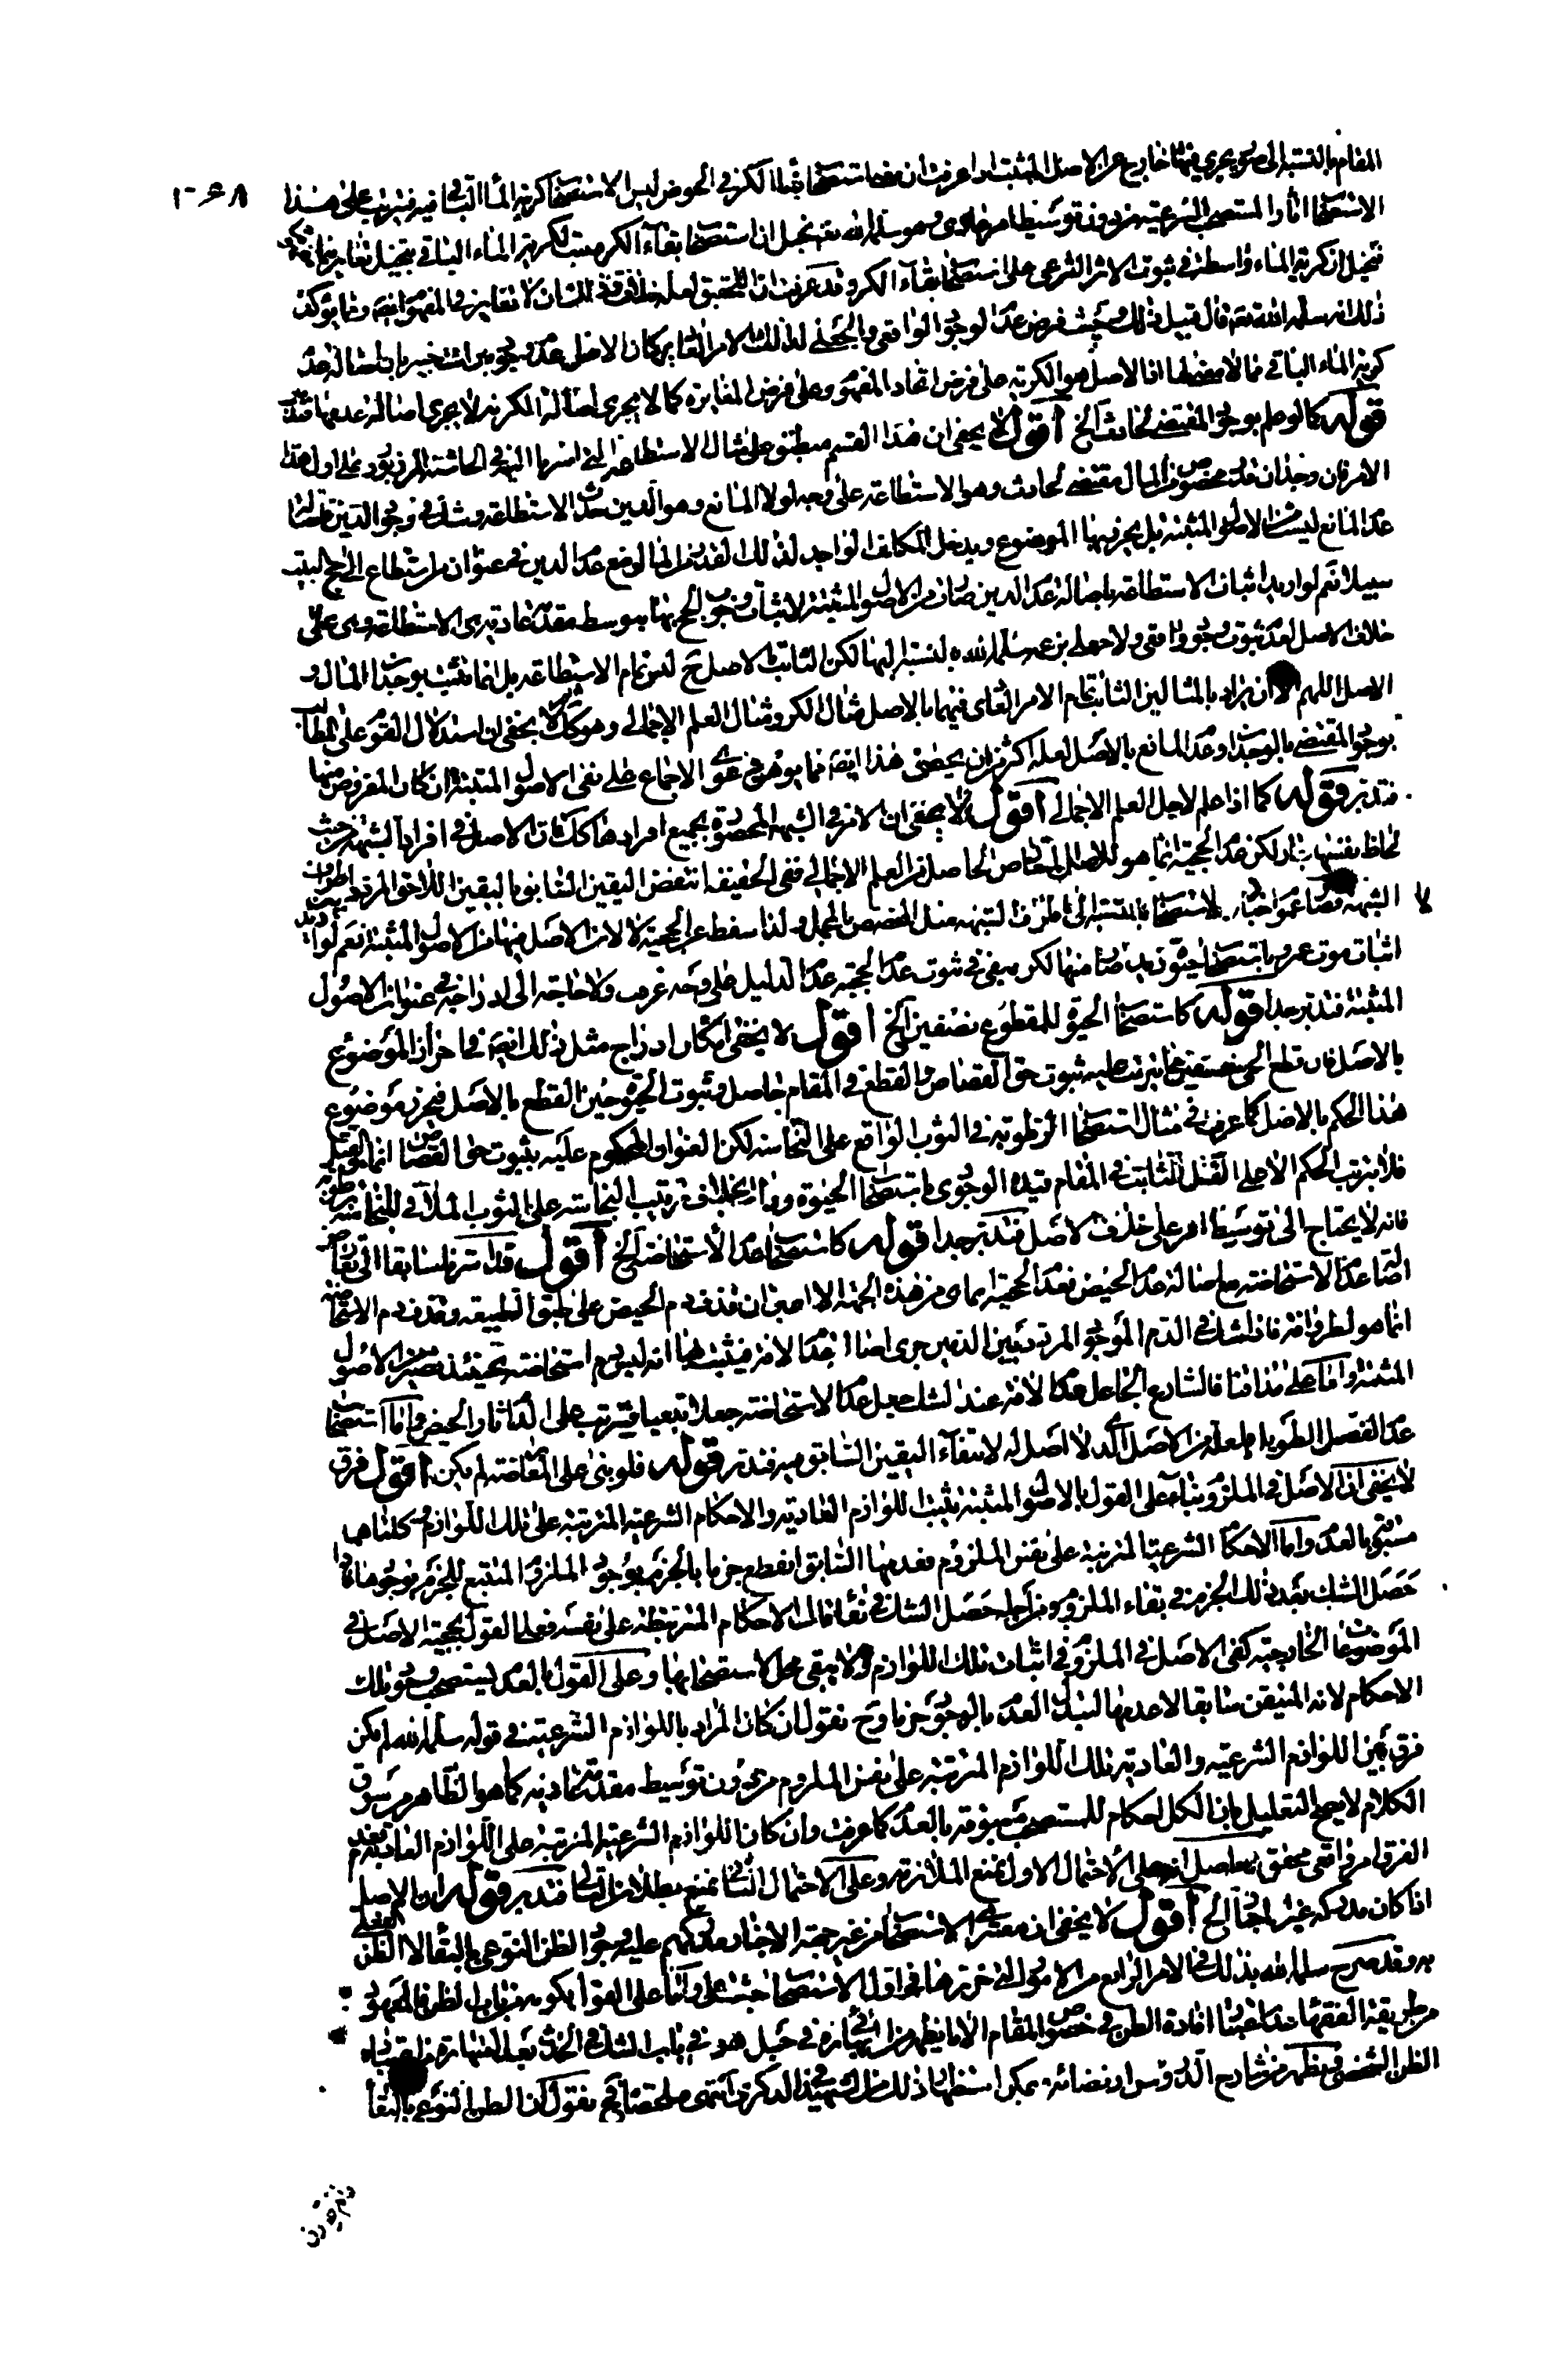 المقام بالنسبة الى صور يجري فيها خارج عن الاصل المثبت اذا عرفت ان معنا استصحاب بقاء الكر في الحوض ليس الا استصحاب كرية الماء الباقي فيه فيترتب على هذا
١٠٦٨
الاستصحاب اثار المستصحب الشرعية من دون توسيط امر عادي وهو سلمه الله تعالى تخيل ان استصحاب بقاء الكر مثبت لكرية الماء الباقي بتخيل تغايرهما
فتخيل ان كرية الماء واسطة في ثبوت الاثر الشرعي على استصحاب بقاء الكر وقد عرفت ان التحقيق لعله خلاف ذلك لان لا تغاير في المفهوم ايضا ومما يؤكد
ذلك انه سلمه الله تعالى قال قبيل ذلك وحيث فرض عدم الوجود الواقعي والجعلي لذلك الامر المغاير كان الاصل عدم وجوده انت خبير بان اصالة عدم
كرية الماء الباقي مما لا معنى لها اذ الاصل هو الكرية على فرض اتحاد المفهوم وعلى فرض المغايرة كما لا يجري اصالة الكرية لا يجري اصالة عدمها
قوله كما لو علم بوجود المقتضي لحادث الخ اقول لا يخفى ان هذا القسم منطبق على مثال الاستطاعة التي اشرنا اليها في الحاشية المزبورة على اول هذا
الامر فان وجدان قدر مخصوص من المال مقتضى لحادث وهو الاستطاعة على وجه لولا المانع وهو الدين حدث الاستطاعة وشك في وجود الدين فاصالة
عدم المانع ليست من الاصول المثبتة بل يحرز بها الموضوع ويدخل المكلف الواجد لذلك القدر من المال مع عدم الدين في عنوان من استطاع الى حج البيت
سبيلا نعم لو اريد اثبات الاستطاعة باصالة عدم الدين صار من الاصول المثبتة لاثبات وجوب الحج بها بتوسط مقدمة عادية هي الاستطاعة وهي على
خلاف الاصل لعدم ثبوت وجود واقعي ولا جعلي بزعمه سلمه الله بالنسبة اليها لكن الثابت بالاصل ح ليس تمام الاستطاعة بل انما تثبت بوجدان المال و
الاصل اللهم الا ان يراد بالمثالين الثابت تمام الامر العادي فيهما بالاصل مثال الكر ومثال العلم الاجمالي وهو كك لا يخفى ان استدلال القوم على المطالب
بوجود المقتضي بالوجدان وعدم المانع بالاصل لعله اكثر من ان يحصى هذا ايضا مما يوهن دعوى الاجماع على نفي الاصول المثبتة ان كان المفروض منها
فتدبر قوله كما اذا علم لاجل العلم الاجمالي اقول لا يخفى ان الامر في الشبهة المحصورة بجميع افرادها كك فان الاصل في افراد الشبهة من حيث
لحاظ نفسها جار لكن عدم الحجية انما هو للاصل الخاص الحاصل من العلم الاجمالي ففي الحقيقة انتقض اليقين السابق باليقين اللاحق المردد بين اطراف
الشبهة فصار عموم اخبار الاستصحاب بالنسبة الى اطراف الشبهة مثل المخصص بالمجمل ولذا سقط عن الحجية لا لان الاصل فيها من الاصول المثبتة نعم لو اريد
لا
اثبات موت عمرو باستصحاب حيوة زيد صار منها لكن يبقى في ثبوت عدم الحجية عدم الدليل على وجه غريب ولا حاجة الى ادراجه في عنوان الاصول
المثبتة فتدبر جدا قوله كاستصحاب الحيوة للمقطوع نصفين الخ اقول لا يخفى امكان ادراج مثل ذلك ايضا في احراز الموضوع
بالاصل فان قطع الحي نصفين مما يترتب عليه ثبوت حق القصاص والقطع في المقام حاصل وثبوت الحيوة حين القطع بالاصل فيحرز موضوع
هذا الحكم بالاصل كما عرفت في مثال استصحاب الرطوبة في الثوب الواقع على النجاسة لكن العنوان المحكوم عليه بثبوت حق القصاص انما هو القتل
فلا يترتب الحكم الا على القتل الثابت في المقام قيده الوجودي باستصحاب الحيوة وهذا بخلاف ترتيب النجاسة على الثوب الملاقي للنجاسة برطوبة
فانه لا يحتاج الى توسيط امر على خلاف الاصل فتدبر جدا قوله كاستصحاب عدم الاستحاضة الخ اقول قد اشرنا سابقا الى تعارض
اصالة عدم الاستحاضة مع اصالة عدم الحيض فعدم الحجية انما هي من هذه الجهة الا اصبنا ان قذف دم الحيض على طبق الطبيعة وقذف دم الاستحاضة
انما هو لطرو افة فاذا شك في الدم الموجود المردد بين الدمين جرى اصالة عدم الافة فيثبت بها انه ليس دم استحاضة فحينئذ يصير من الاصول
المثبتة واما على مذاقنا فالشارع الجاعل عدم الافة عند الشك جعل عدم الاستحاضة جعلا تبعيا فيترتب على الدم اثار الحيض واما استصحاب
عدم الفصل الطويل فلعله من الاصل الذي لا اصل له لانتفاء اليقين السابق فيه فتدبر قوله فلو بنى على المعارضة لم يكن اقول فرق
لا يخفى ان الاصل في الملزوم بناء على القول بالاصول المثبتة يثبت اللوازم العادية والاحكام الشرعية المترتبة على تلك اللوازم كلتاهما
مسبوق بالعدم واما الاحكام الشرعية المترتبة على نفس الملزوم فعدمها السابق انقطع جزما بالجزم بوجود الملزوم المستتبع للجزم بوجودها فاذا
حصل الشك بعد ذلك الجزم في بقاء الملزوم ومن اجله حصل الشك في بقاء تلك الاحكام المترتبة على نفسه فعلى القول بحجية الاصل في
الموضوعات الخارجية كفى الاصل في الملزوم في اثبات تلك اللوازم ولا يبقى محل لاستصحابها وعلى القول بالعدم يستصحب وجود تلك
الاحكام لانه المتيقن سابقا لا عدمها لتبدل العدم بالوجود جزما وح نقول ان كان المراد باللوازم الشرعية في قوله سلمه الله لم يكن
فرق بين اللوازم الشرعية والعادية تلك اللوازم المترتبة على نفس الملزوم من دون توسيط مقدمة عادية كما هو الظاهر من سوق
الكلام لا يصح التعليل بان الكل احكام للمستصحب مسبوقة بالعدم كما عرفت وان كان اللوازم الشرعية المترتبة على اللوازم العادية فعدم
الفرق امر واقعي محقق حاصل انه على الاحتمال الاول يمنع الملازمة وعلى الاحتمال الثاني يمنع بطلان التالي فتدبر قوله ان الاصل
اذا كان مدركه غير الاخبار الخ اقول لا يخفى ان معتبري الاستصحاب من غير جهة الاخبار مدركهم عليه وجود الظن النوعي بالبقاء لا الظن الفعلي
به وقد صرح سلمه الله بذلك في الامر الرابع من الامور التي حررها في اول الاستصحاب حيث قال واما على القول بكونه من باب الظن فالمعهود
من طريقة الفقهاء عدم اعتبار افادة الظن في خصوص المقام الا ما يظهر من البهائي في حبل المتين في باب الشك في الحدث بعد الطهارة من اعتبار
الظن الشخصي ويظهر من شارح الدروس ارتضائه ويمكن استظهار ذلك من الشهيد في الذكرى انتهى ملخصا فح نقول ان الظن النوعي بالبقاء